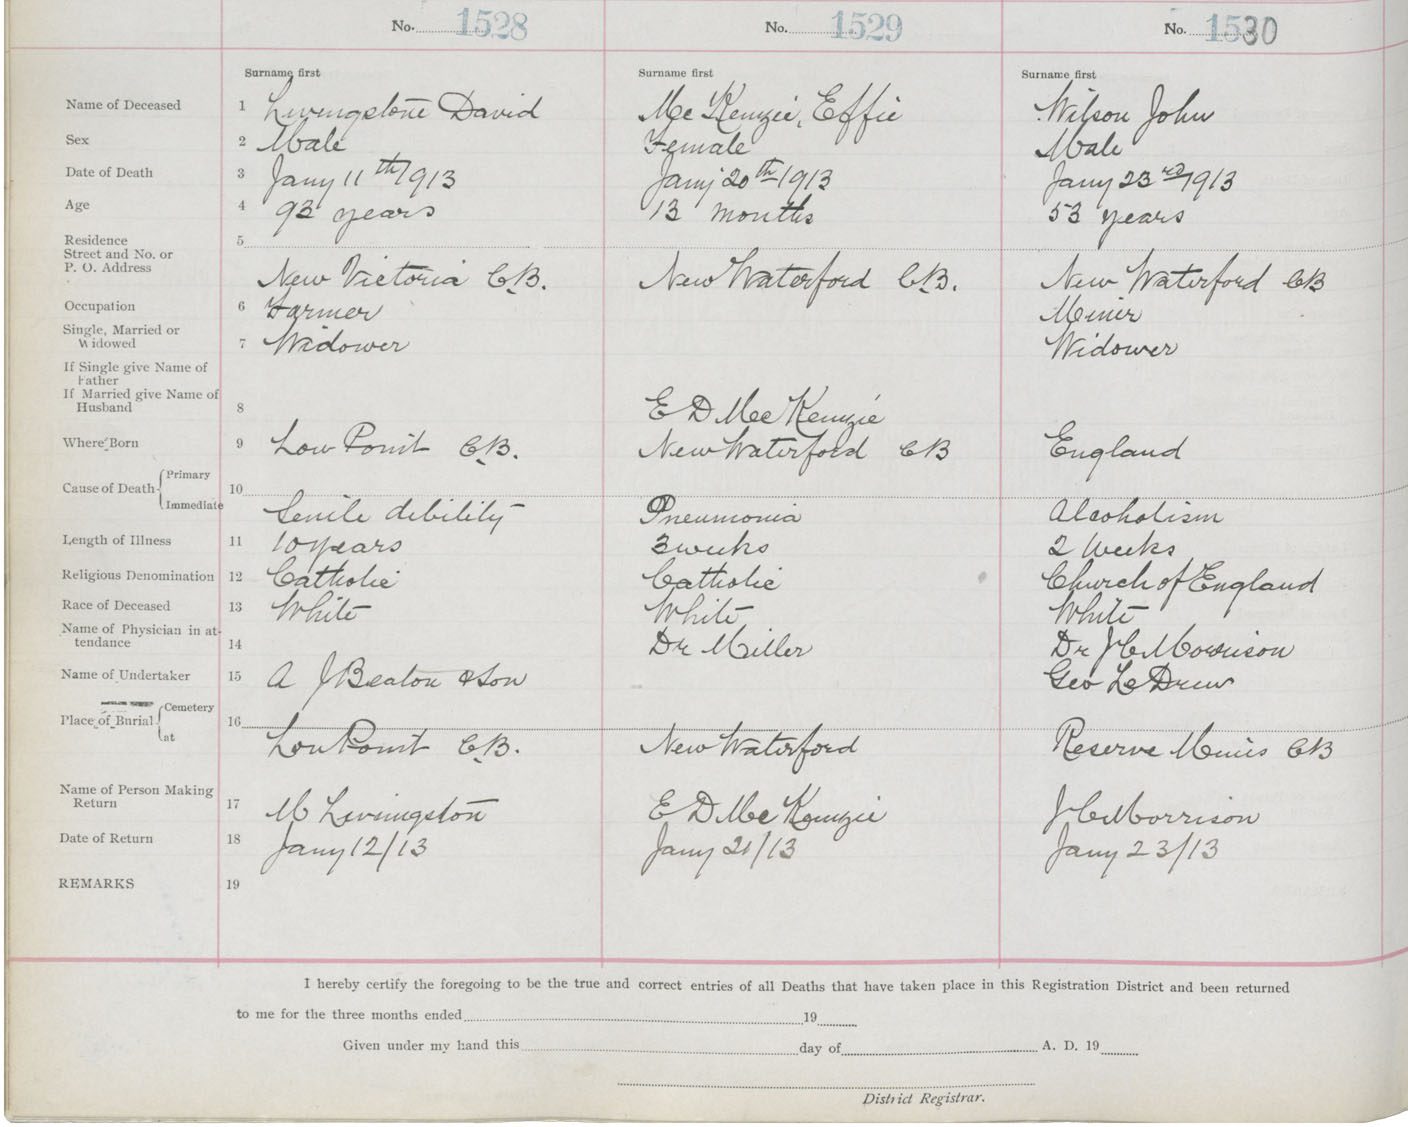 No. 1528 No. 1529 No. 1530
Surname first Surname first Surname first
Name of Deceased 1 Livingstone David Mc Kenzie, Effie Wilson John
Sex 2 Male Female Male
Date of Death 3 Jany 11th/1913 Jany 20th/1913 Jany 23rd/1913
Age 4 93 years 13 months 53 years
Residence 5
Street and No. or
P. O. Address
New Victoria C.B. New Waterford C.B. New Waterford CB
Occupation 6 Farmer Miner
Single, Married or
Widowed 7 Widower Widower
If Single give Name of
Father
If Married give Name of
Husband 8 E D Mc Kenzie
Where Born 9 Low Point C.B. New Waterford CB England
Primary
Cause of Death 10
Immediate Senile debility Pneumonia Alcoholism
Length of Illness 11 10 years 3 weeks 2 Weeks
Religious Denomination 12 Catholic Catholic Church of England
Race of Deceased 13 White White White
Name of Physician in at-
tendance 14 Dr Miller Dr J C Morrison
Name of Undertaker 15 A J Beaton & Son Geo Le Drew
Cemetery
Place of Burial 16
at Low Point C.B. New Waterford Reserve Mines CB
Name of Person Making
Return 17 M Livingston E D Mc Kenzie J C Morrison
Date of Return 18 Jany 12/13 Jany 21/13 Jany 23/13
REMARKS 19
I hereby certify the foregoing to be the true and correct entries of all Deaths that have taken place in this Registration District and been returned
to me for the three months ended 19
Given under my hand this day of A. D. 19
District Registrar.